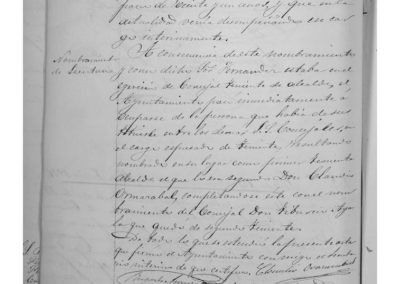 plaza de veinte y un años, y que en la
actualidad venia desempeñando ese car-
go interinamente.
Nombramiento
de Teniente
A consecuencia de este nombramiento
y como dicho Sor. Fernandez estaba en el
ejercicio de Concejal teniente de alcalde, el
Ayuntamiento paso inmediatamente a
ocuparse de la persona que habia de sus
tituirle entre los demas S. S. Concejales, en
el cargo espresado de teniente, resultando
nombrado en su lugar como primer teniente
Alcalde el que lo era segundo Don Claudio
completandose este con el nom
bramiento del Concejal Don
la que quedo de segundo teniente.
De todo lo que se estendio la presente acta
que firma el Ayuntamiento con migo el Secreta
rio interino de que certifico. Claudio